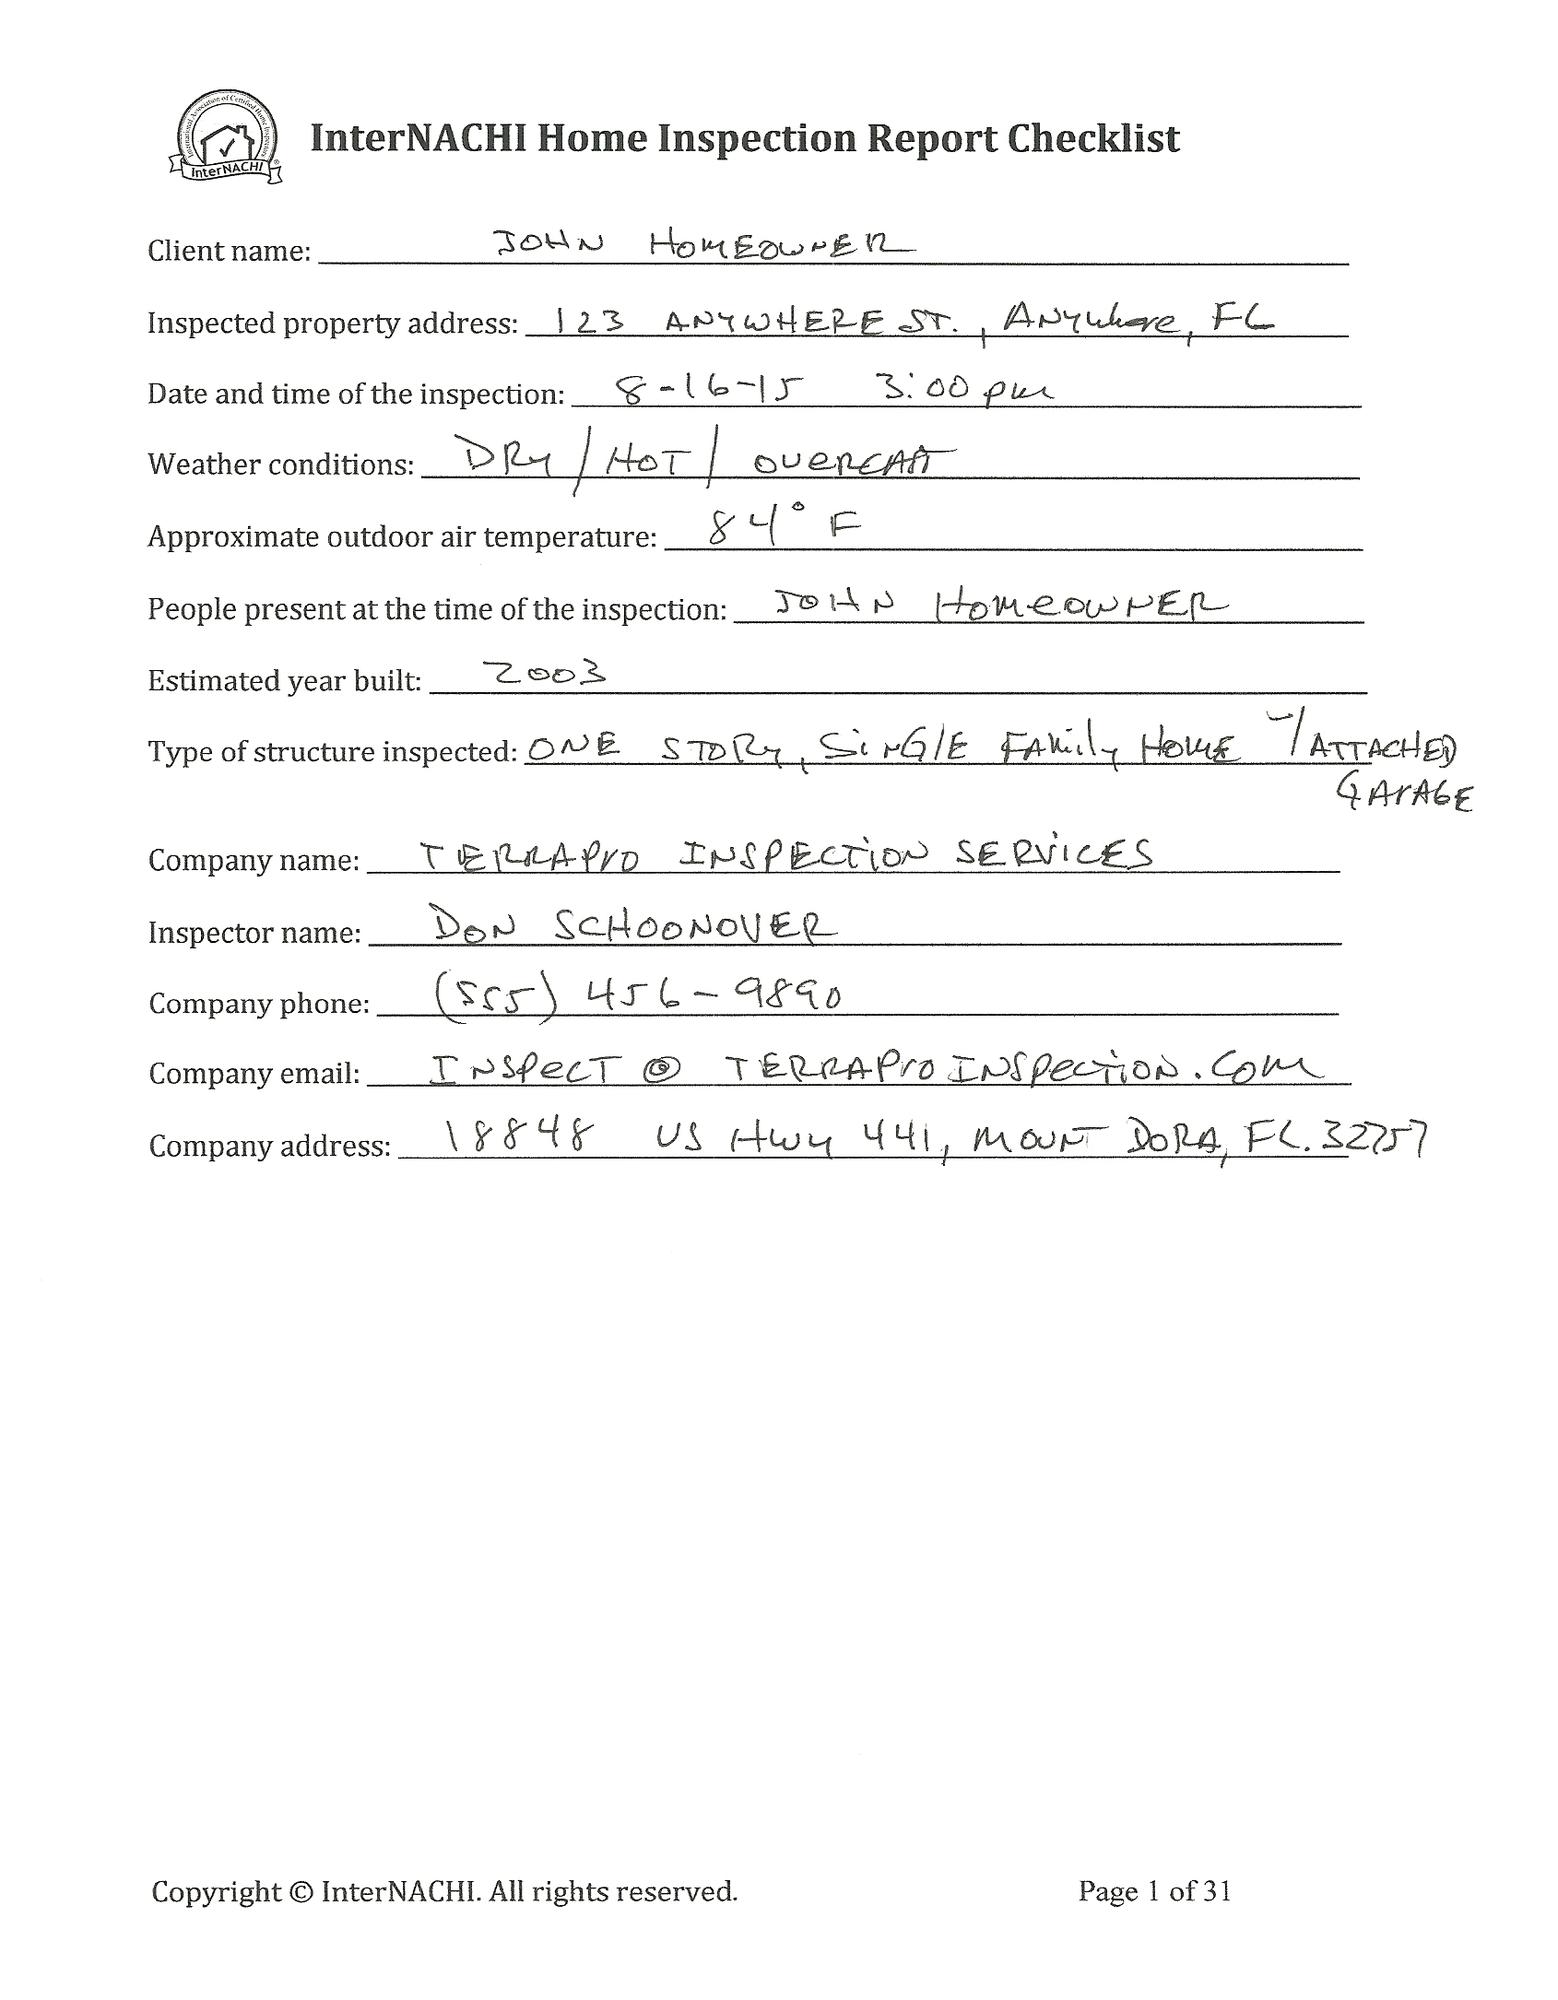 International Association of Certified Home Inspectors
InterNACHI®
InterNACHI Home Inspection Report Checklist
Client name: JOHN HOMEOWNER
Inspected property address: 123 ANYWHERE ST., ANYwhere, FL
Date and time of the inspection: 8-16-15 3:00 pm
Weather conditions: DRY / HOT / OVERCAST
Approximate outdoor air temperature: 84° F
People present at the time of the inspection: JOHN HOMEOWNER
Estimated year built: 2003
Type of structure inspected: ONE STORY, SiNGlE FAMily HOME w/ ATTACHED
GArAGE
Company name: TERRAPrO INSPECTiON SERViCES
Inspector name: DON SCHOONOVER
Company phone: (555) 456-9890
Company email: INSPeCT @ TERRAPrOINSPecTiON.COM
Company address: 18848 US Hwy 441, MOUNT DORA, FL. 32757
Copyright © InterNACHI. All rights reserved. Page 1 of 31